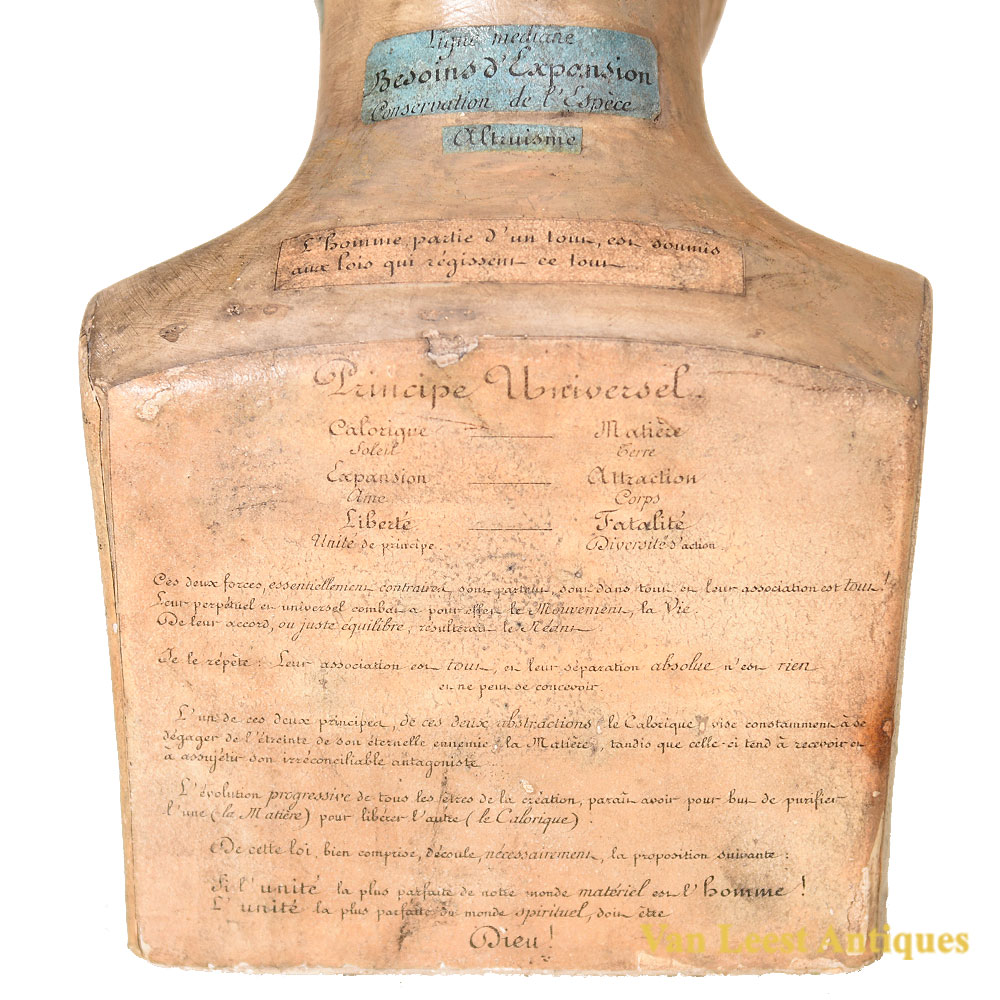 Ligne mediane
Besoins d'Expansion
Conservation de l'Espèce
Altruisme
L'homme, partie d'un tout, est soumis
aux lois qui régissent ce tout
Principe Universel
Calorique — Matière
Soleil Terre
Expansion — Attraction
Ame Corps
Liberté — Fatalité
Unité de principe. Diversité d'action
Ces deux forces, essentiellement contraires, sont partout, sont dans tout, et leur association est tout!
Leur perpétuel et universel combat a pour effet le Mouvement, la Vie.
De leur accord, ou juste équilibre, résulterait le Néant
Je le répète: Leur association est tout, et leur séparation absolue n'est rien
et ne peut se concevoir.
L'un de ces deux principes, de ces deux abstractions, le Calorique, vise constamment à se
dégager de l'étreinte de son éternelle ennemie, la Matière, tandis que celle-ci tend à recevoir et
à assujétir son irréconciliable antagoniste
L'évolution progressive de tous les êtres de la création, paraît avoir pour but de purifier
l'une (la Matière) pour libérer l'autre (le Calorique).
De cette loi, bien comprise, découle, nécessairement, la proposition suivante:
Si l'unité la plus parfaite de notre monde matériel est l'homme!
L'unité la plus parfaite du monde spirituel, doit être
Dieu!
Van Leest Antiques